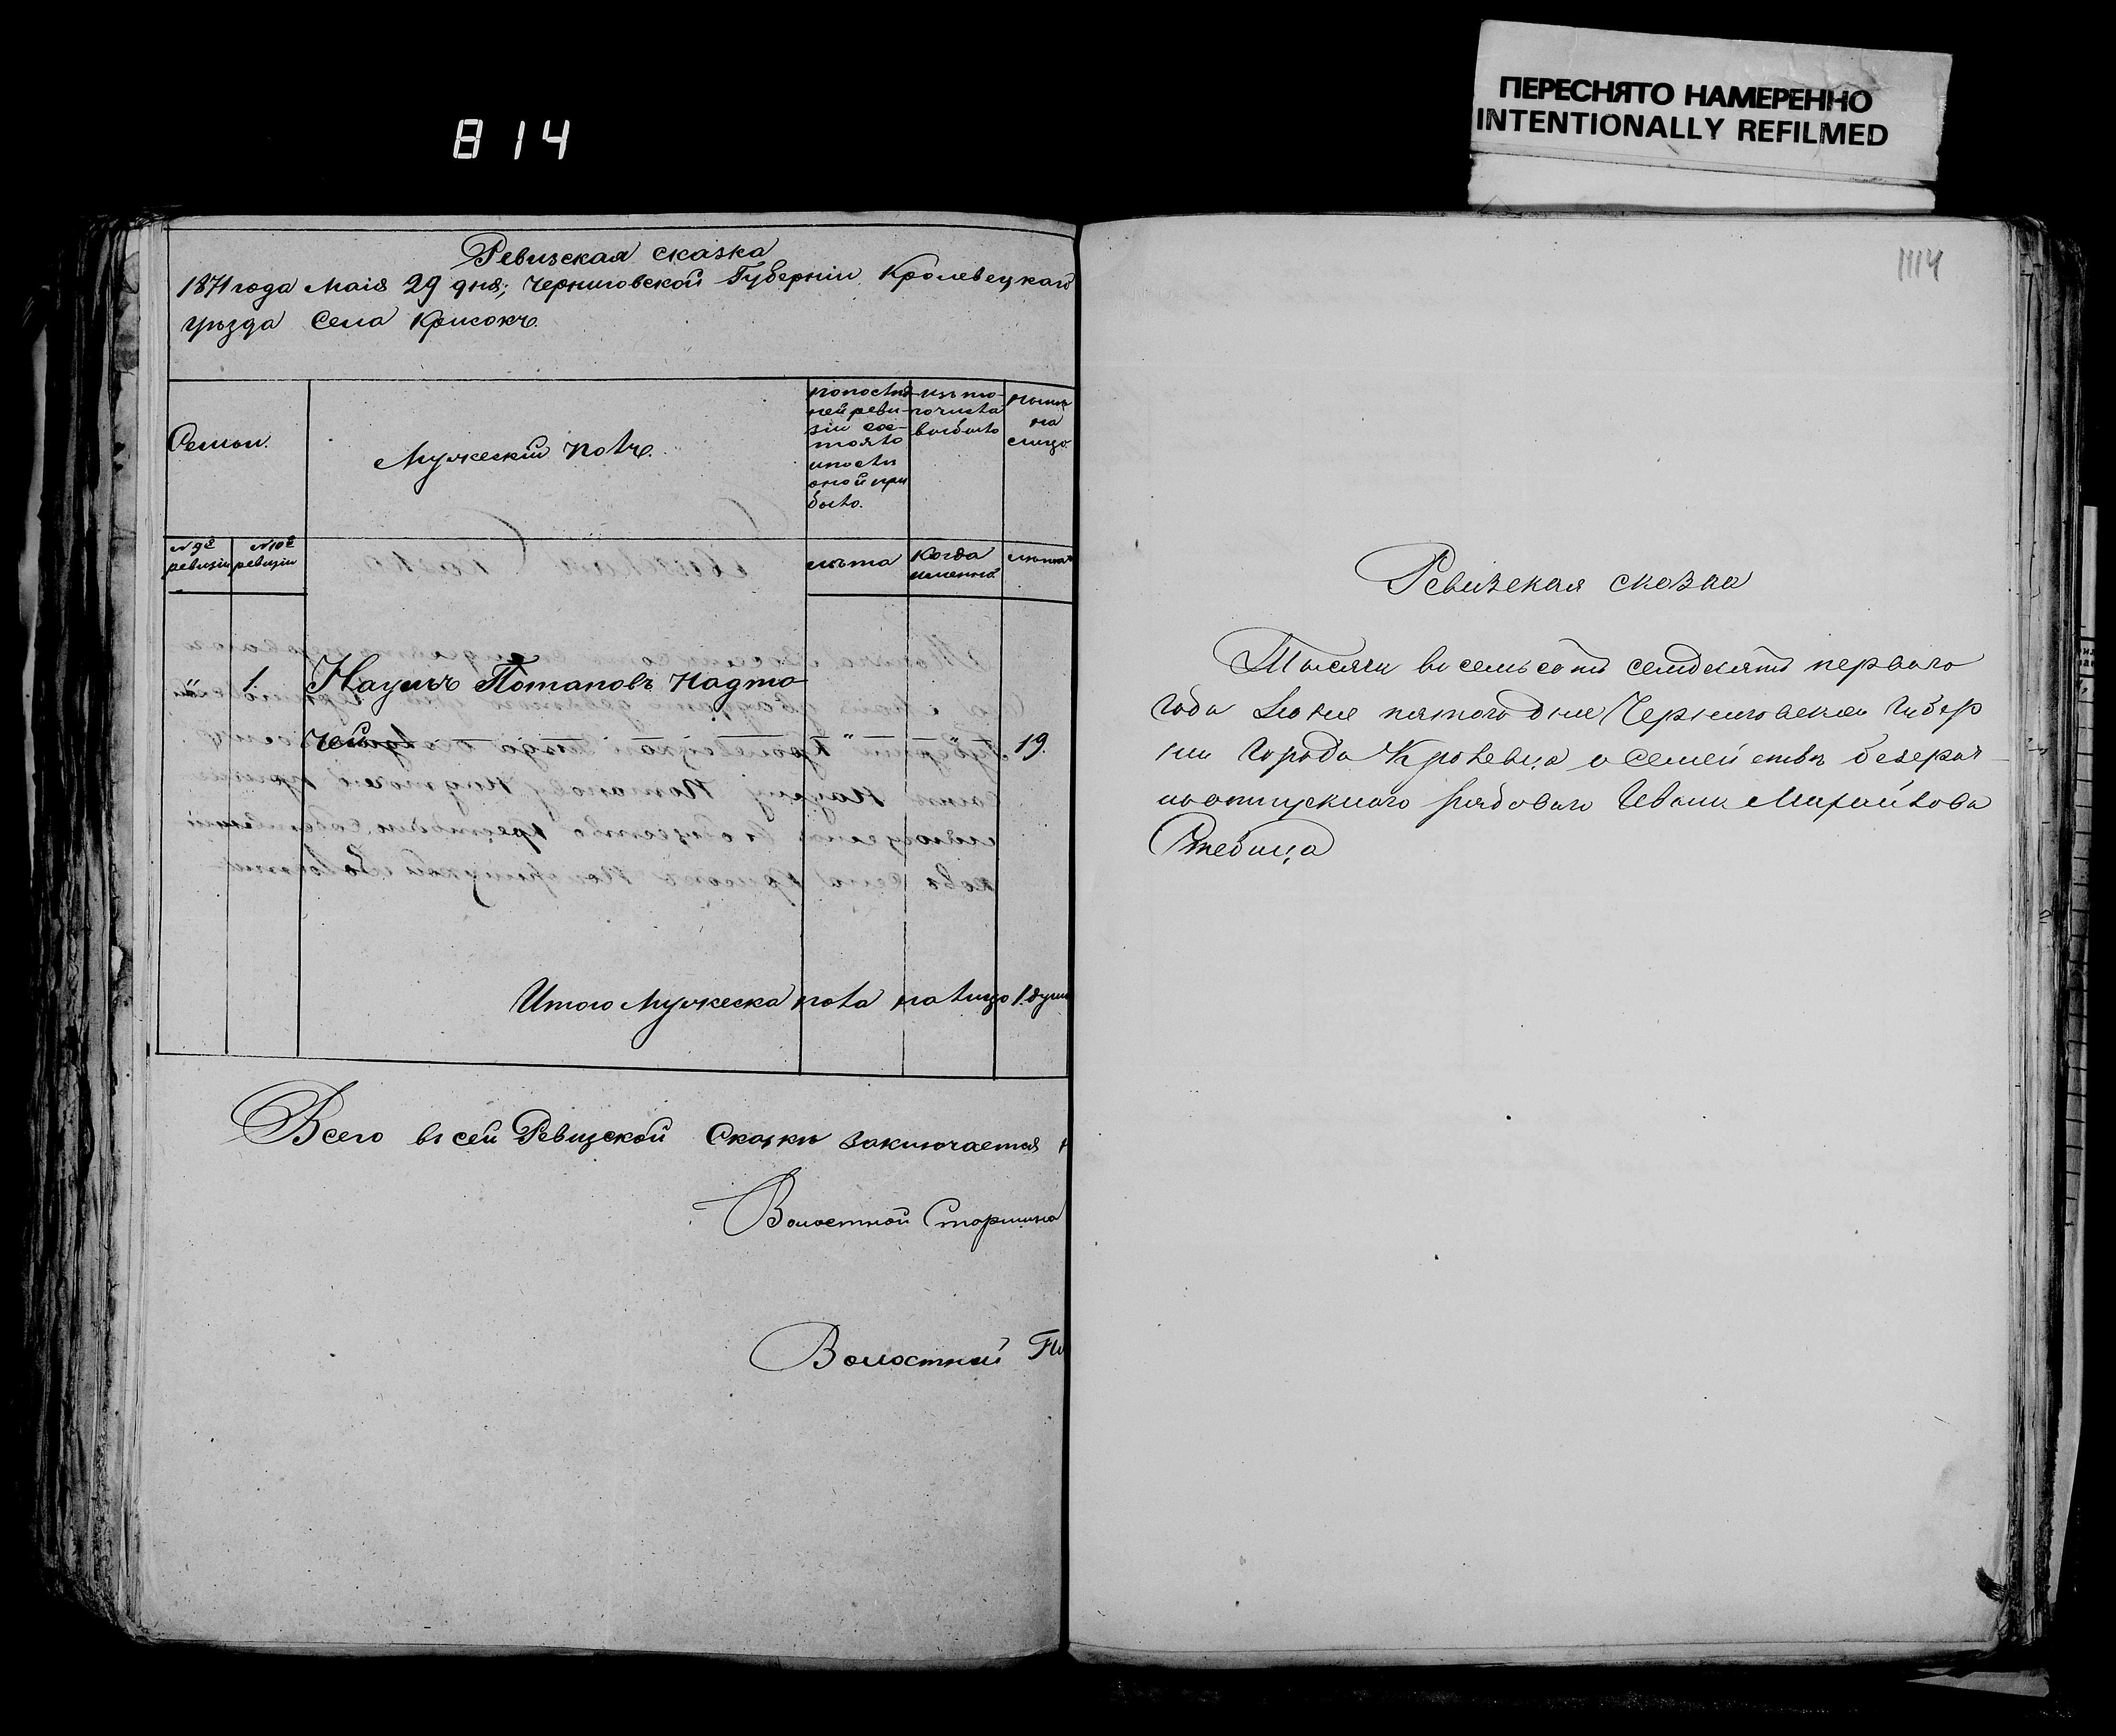 814
ПЕРЕСНЯТО НАМЕРЕННО
INTENTIONALLY REFILMED
Ревизская сказка
1871 года Маія 29 дня; Черниговской Губерніи Кролевецкаго
уѣзда Села Крисокъ
Семьи.
Мужескій полъ.
по послѣд
ней реви-
зіи сос-
тояло
и послѣ
оной при
было.
изъ то-
го числа
выбыло
нынѣ
на
лицо.
№ 9й
ревизіи
№ 10й
ревизіи
лѣта
когда
именно
лѣта
" 1. Наумъ Потаповъ Надто
чей " 19.
Итого Мужеска пола на лицо 1. душа
Всего въ сей Ревизской Сказки заключается
Волостной Старшина
Волостный
1114
Ревизская сказка
Тысяча восемьсотъ семдесятъ перваго
года Іюня пятого дня Черниговской Губер
ніи Города Кролевца о семействѣ безсроч-
ноотпускного рядового Ивана Михайлова